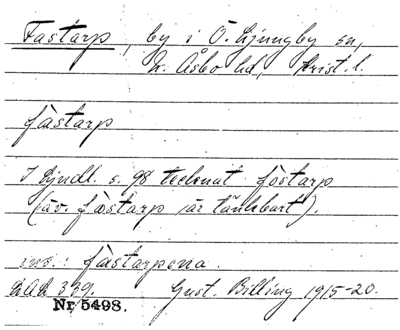 Fastarp, by i Ö. Ljungby sn,
N. Åsbo hd, Krist. l.
fàstarp
I Ljndl. s. 98 tecknat fòstarp
(äv. fàstarp är tänkbart).
inv.: fàstarpena.
LAL 339. Gust. Billing 1915-20.
Nr 5498.